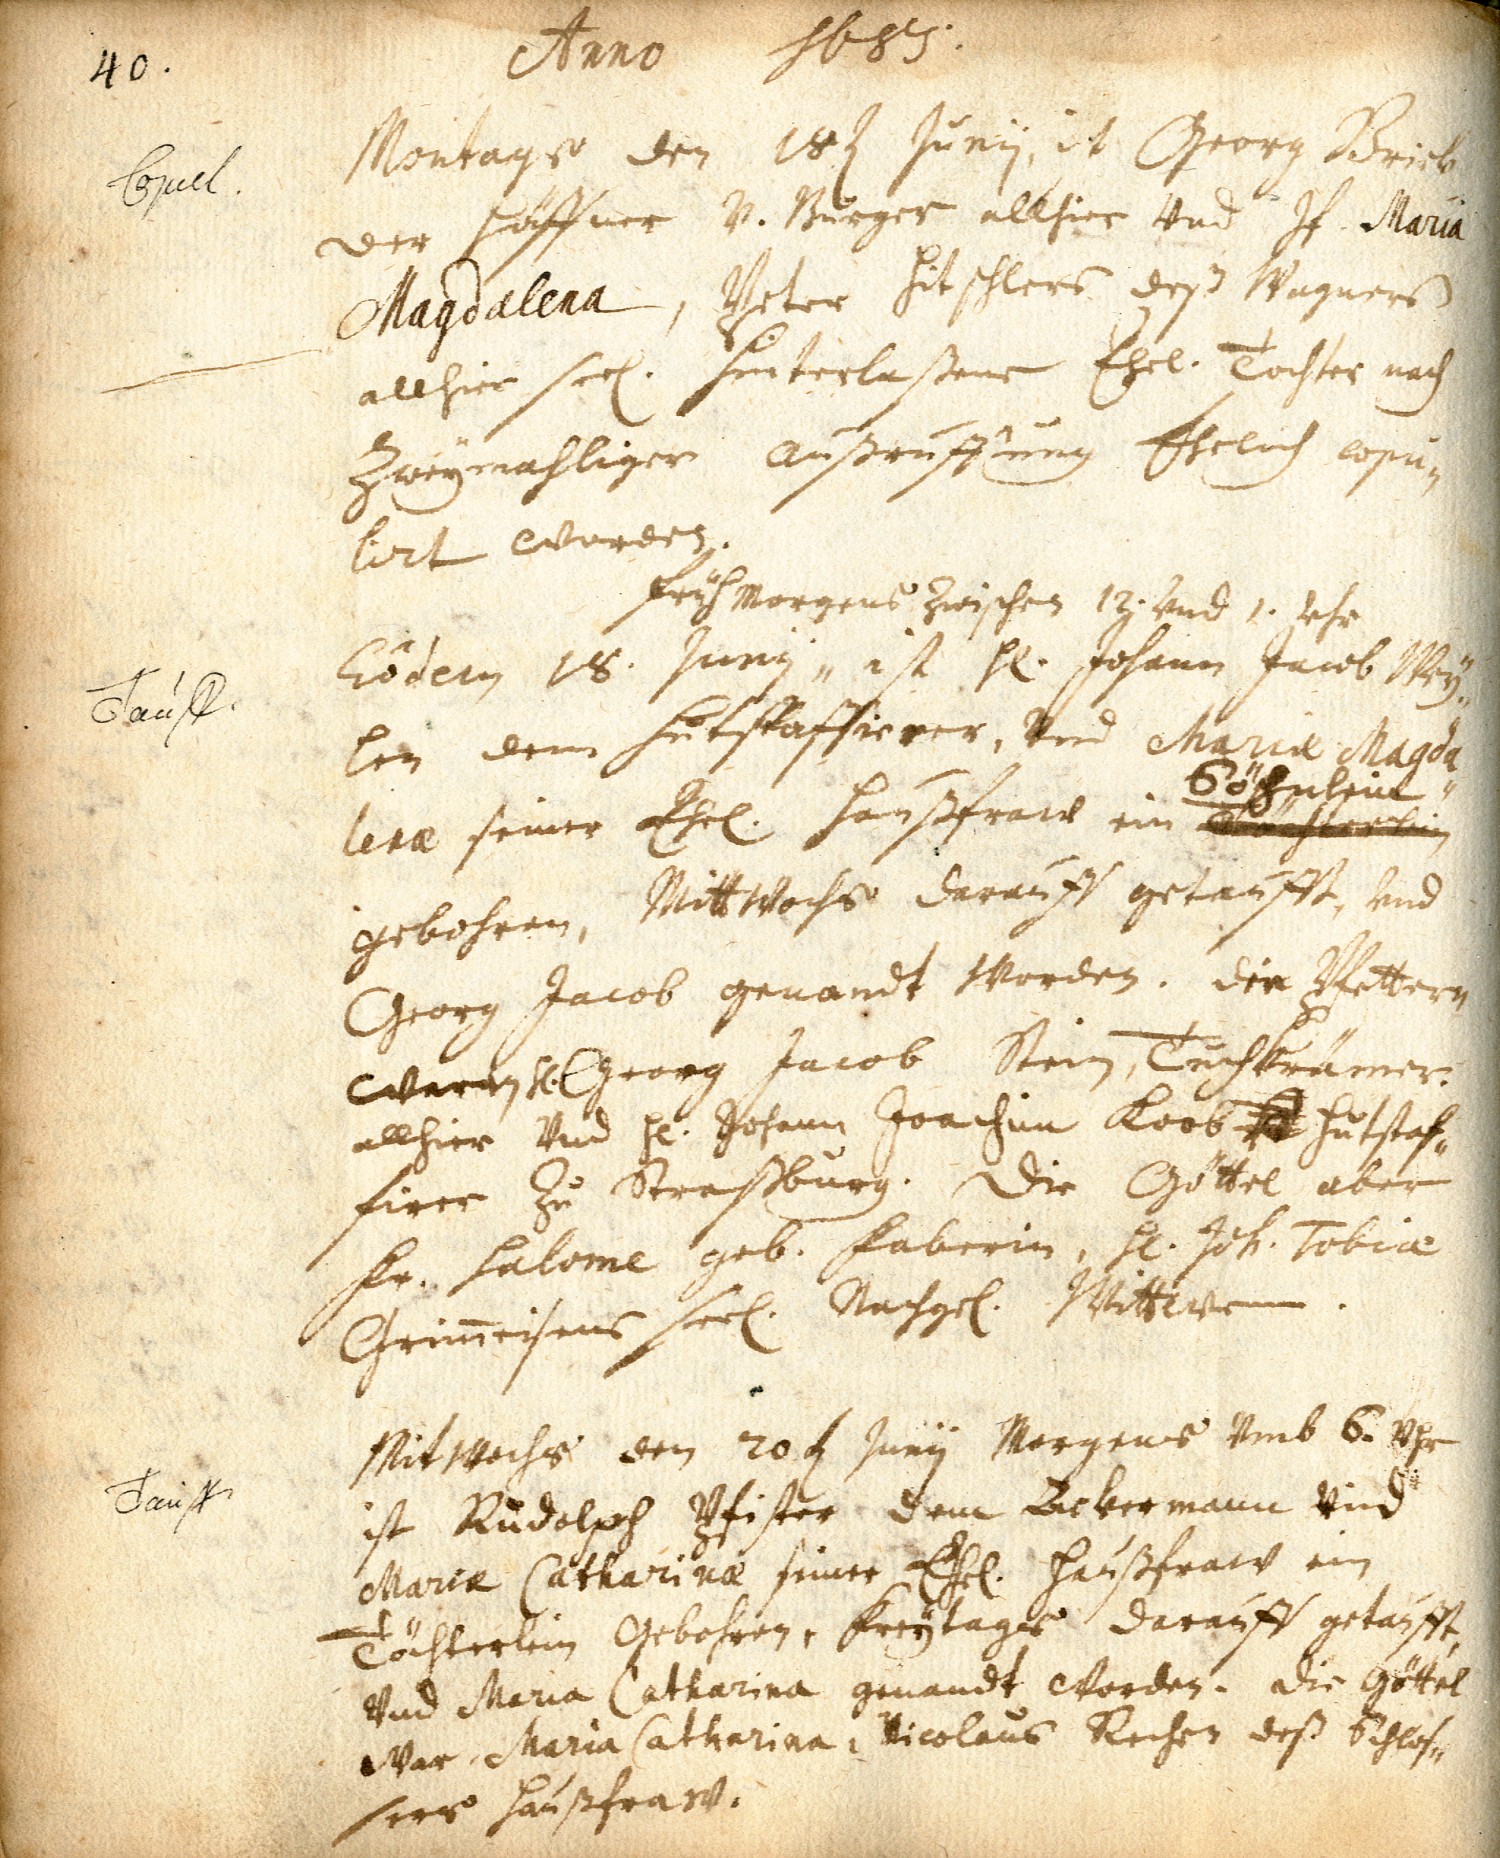 40.
Anno 1683.
Copul.
Montags den 18t Junij, ist Georg Brick
der Häffner v. Burger allhier und Jf. Maria
Magdalena, Peter Hitschlers deß Wagners
allhier seel. hinterlaßene Ehel. Tochter nach
Zweymahliger Außruffung Ehelich copu-
lirt worden.
früh Morgens Zwischen 12. und 1. Uhr
Tauff.
Eôdem 18. Junij, ist H. Johann Jacob Wey-
len dem Hutstaffierer, und Mariæ Magda-
lenæ seiner Ehel. Haußfraw ein Söhnlein
gebohren, Mittwochs darauff getaufft, und
Georg Jacob genandt worden. die Pfettern
waren H. Georg Jacob Stein, Tuchkrämer
allhier und H. Johann Joachim Koob Hutstaf-
firer Zu Straßburg. Die Göttel aber
Fr. Salome geb. Faberin, H. Joh. Tobiæ
Grimmeisens seel. Nachgel. Wittwe.
Tauff
Mitwochs den 20t Junij Morgens umb 6. Uhr
ist Rudolph Pfister dem Ackermann und
Mariæ Catharinæ seiner Ehel. Haußfraw ein
Töchterlein Gebohren, Freytags darauff getaufft,
und Maria Catharina genandt worden. die Göttel
war Maria Catharina, Nicolaus deß Schlos-
sers Haußfraw.